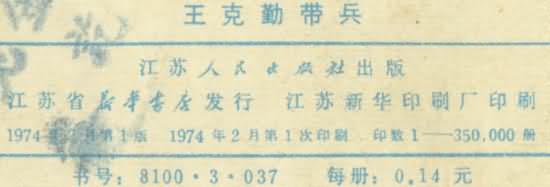 王克勤带兵
江苏人民出版社出版
江苏省新华书店发行 江苏新华印刷厂印刷
1974年2月第1版 1974年2月第1次印刷 印数1——350,000册
书号：8100·3·037 每册：0.14元